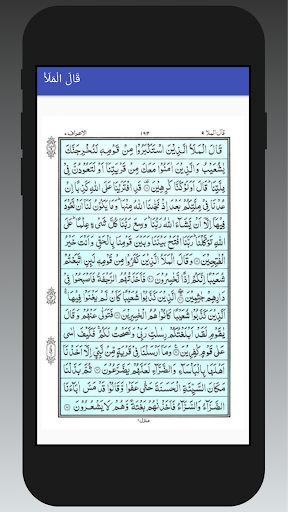 قَالَ الْمَلَأُ
قال الملا ٩ ١٩٣ الاعراف ٧
قَالَ الْمَلَاُ الَّذِيْنَ اسْتَكْبَرُوْا مِنْ قَوْمِهٖ لَنُخْرِجَنَّكَ
يٰشُعَيْبُ وَالَّذِيْنَ اٰمَنُوْا مَعَكَ مِنْ قَرْيَتِنَاۤ اَوْ لَتَعُوْدُنَّ فِيْ
مِلَّتِنَا ؕ قَالَ اَوَلَوْ كُنَّا كٰرِهِيْنَ ۝ قَدِ افْتَرَيْنَا عَلَى اللّٰهِ كَذِبًا اِنْ
عُدْنَا فِيْ مِلَّتِكُمْ بَعْدَ اِذْ نَجّٰىنَا اللّٰهُ مِنْهَا ؕ وَمَا يَكُوْنُ لَنَاۤ اَنْ نَّعُوْدَ
فِيْهَاۤ اِلَّاۤ اَنْ يَّشَآءَ اللّٰهُ رَبُّنَا ؕ وَسِعَ رَبُّنَا كُلَّ شَيْءٍ عِلْمًا ؕ عَلَى
اللّٰهِ تَوَكَّلْنَا ؕ رَبَّنَا افْتَحْ بَيْنَنَا وَبَيْنَ قَوْمِنَا بِالْحَقِّ وَاَنْتَ خَيْرُ
الْفٰتِحِيْنَ ۝ وَقَالَ الْمَلَاُ الَّذِيْنَ كَفَرُوْا مِنْ قَوْمِهٖ لَئِنِ اتَّبَعْتُمْ
شُعَيْبًا اِنَّكُمْ اِذًا لَّخٰسِرُوْنَ ۝ فَاَخَذَتْهُمُ الرَّجْفَةُ فَاَصْبَحُوْا فِيْ
دَارِهِمْ جٰثِمِيْنَ ۝ الَّذِيْنَ كَذَّبُوْا شُعَيْبًا كَاَنْ لَّمْ يَغْنَوْا فِيْهَا ۚ
اَلَّذِيْنَ كَذَّبُوْا شُعَيْبًا كَانُوْا هُمُ الْخٰسِرِيْنَ ۝ فَتَوَلّٰى عَنْهُمْ وَقَالَ
يٰقَوْمِ لَقَدْ اَبْلَغْتُكُمْ رِسٰلٰتِ رَبِّيْ وَنَصَحْتُ لَكُمْ ۚ فَكَيْفَ اٰسٰى
عَلٰى قَوْمٍ كٰفِرِيْنَ ۝ وَمَاۤ اَرْسَلْنَا فِيْ قَرْيَةٍ مِّنْ نَّبِيٍّ اِلَّاۤ اَخَذْنَاۤ
اَهْلَهَا بِالْبَاْسَآءِ وَالضَّرَّآءِ لَعَلَّهُمْ يَضَّرَّعُوْنَ ۝ ثُمَّ بَدَّلْنَا
مَكَانَ السَّيِّئَةِ الْحَسَنَةَ حَتّٰى عَفَوْا وَّقَالُوْا قَدْ مَسَّ اٰبَآءَنَا
الضَّرَّآءُ وَالسَّرَّآءُ فَاَخَذْنٰهُمْ بَغْتَةً وَّهُمْ لَا يَشْعُرُوْنَ ۝
منزل ٢